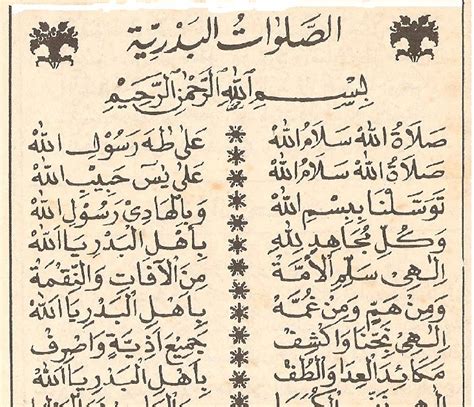 الصَّلَوَاتُ الْبَدْرِيَّة
بِسْمِ اللهِ الرَّحْمٰنِ الرَّحِيْمِ
صَلَاةُ اللهْ سَلَامُ اللهْ * عَلَى طٰهَ رَسُوْلِ اللهْ
صَلَاةُ اللهْ سَلَامُ اللهْ * عَلَى يٰسَ حَبِيْبِ اللهْ
تَوَسَّلْنَا بِبِسْمِ اللهْ * وَبِالْهَادِيْ رَسُوْلِ اللهْ
وَكُلِّ مُجَاهِدٍ لِلهِ * بِأَهْلِ الْبَدْرِ يَا اَللهْ
اِلٰهِيْ سَلِّمِ الْأُمَّةْ * مِنَ الْآفَاتِ وَالنِّقْمَةْ
وَمِنْ هَمٍّ وَمِنْ غُمَّةْ * بِأَهْلِ الْبَدْرِ يَا اَللهْ
اِلٰهِيْ نَجِّنَا وَاكْشِفْ * جَمِيْعَ أَذِيَّةٍ وَاصْرِفْ
مَكَائِدَ الْعِدَا وَالْطُفْ * بِأَهْلِ الْبَدْرِ يَا اَللهْ